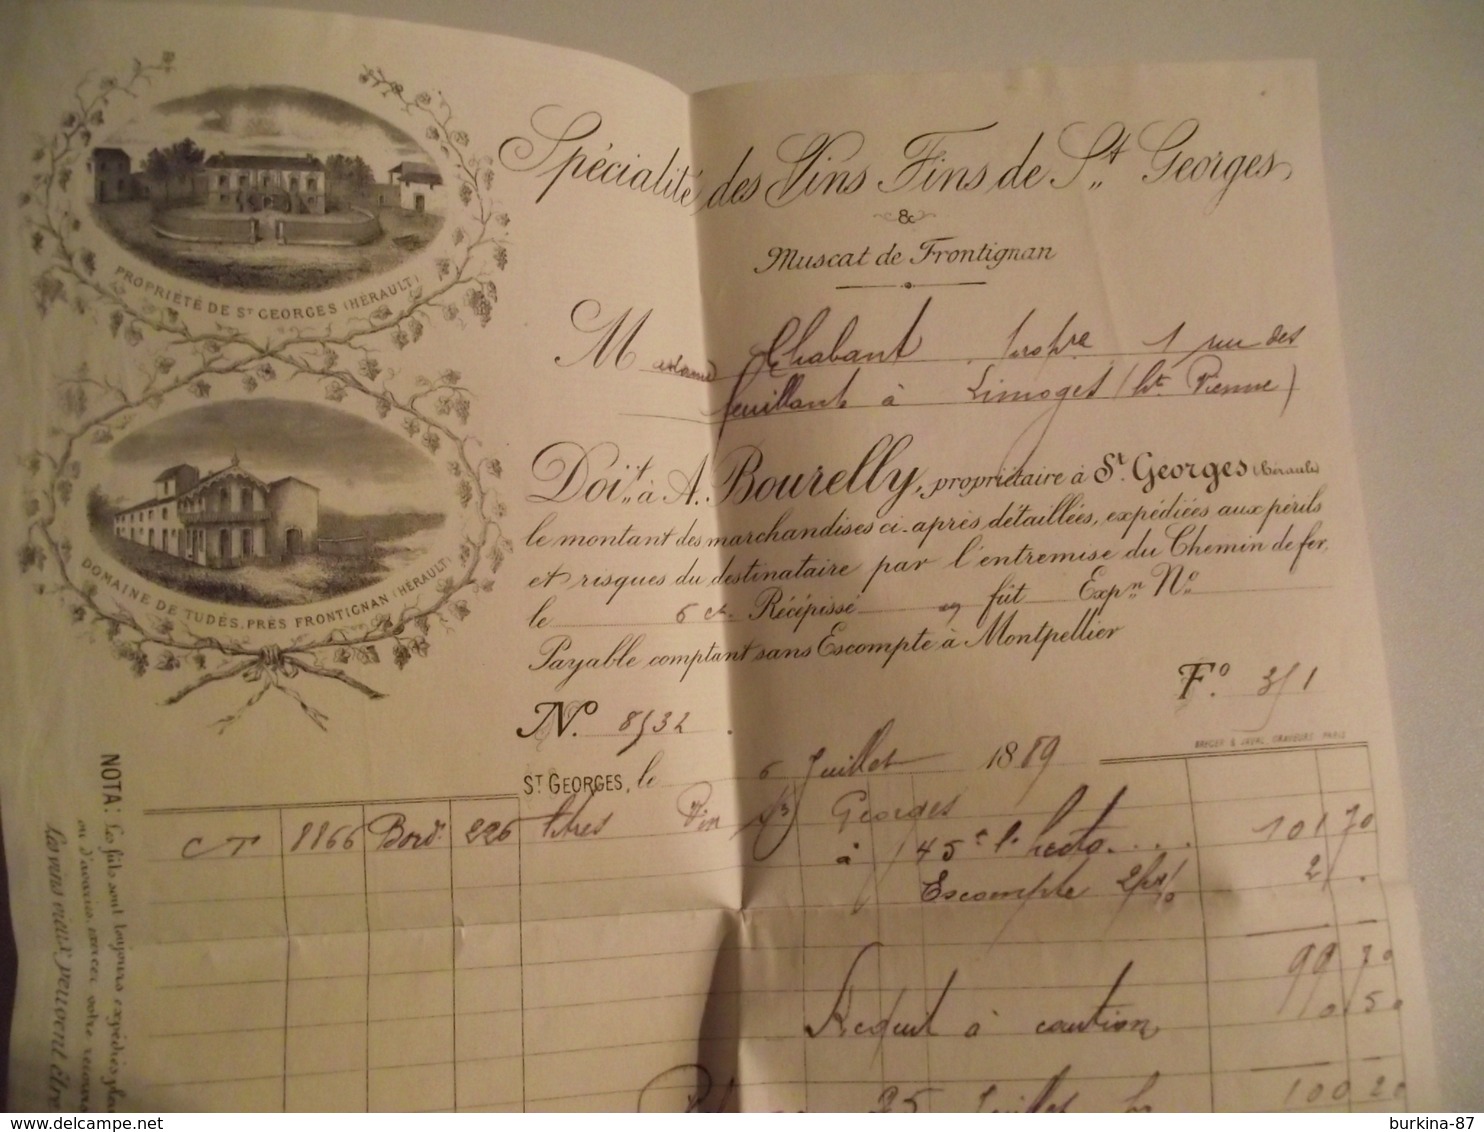 Spécialité des Vins Fins de St Georges
&
Muscat de Frontignan
PROPRIÉTÉ DE ST GEORGES (HÉRAULT)
Madame Chabant prop.re 1 rue des
feuillants à Limoges (hte Vienne)
Doit à A. Bourelly, propriétaire à St. Georges (Hérault)
le montant des marchandises ci-après détaillées, expédiées aux périls
et risques du destinataire par l'entremise du Chemin de fer,
DOMAINE DE TUDÈS, PRÈS FRONTIGNAN (HÉRAULT)
le 6 ct. Récépissé fût Exp.n No
Payable comptant sans Escompte à Montpellier
No. 8532
Fo. 351
ST GEORGES, le 6 Juillet 1889
CT 8866 Bord. 226 litres Vin Georges
à 45 l'hecto.... 101 70
Escompte 2 2
99 70
Acquit à caution 0 50
100 20
25 Juillet
NOTA: Les fûts sont toujours expédiés
ou d'avaries, exercez votre recours
Les vins vieux peuvent être
burkina-87